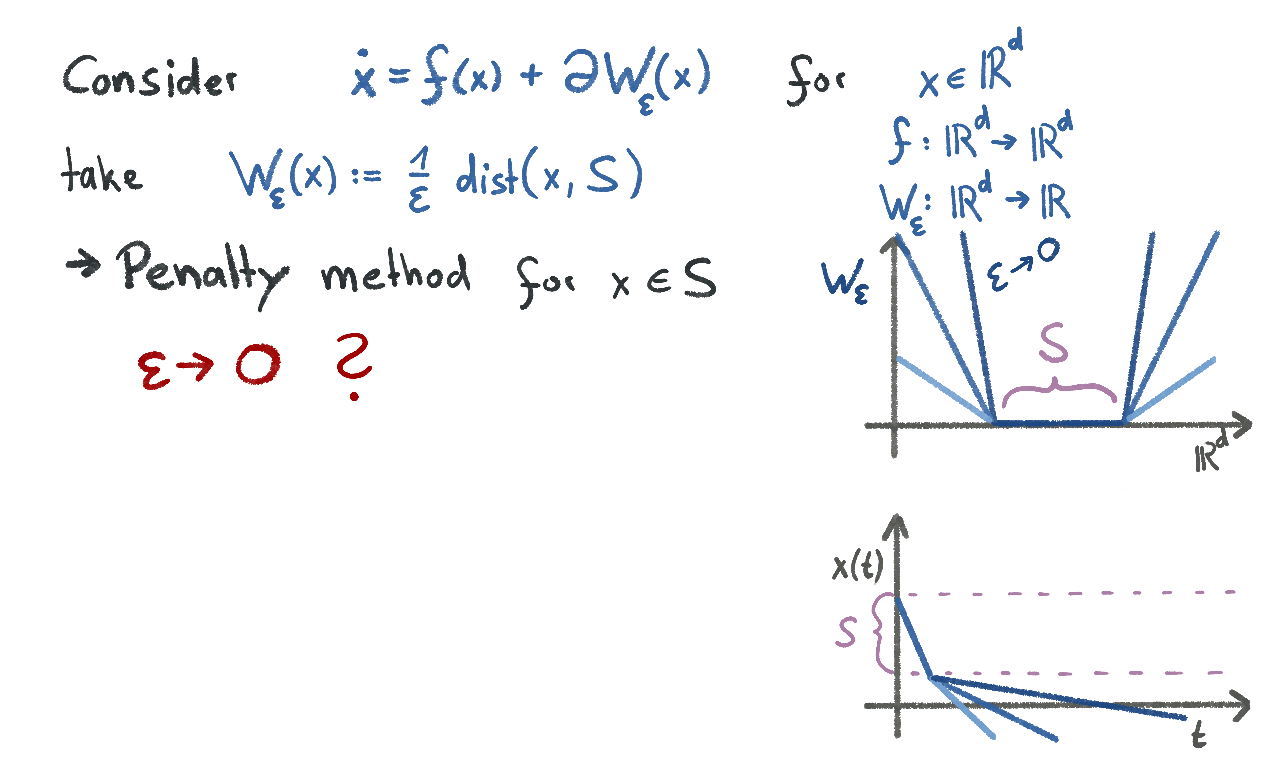 Consider ẋ = f(x) + ∂W_ε(x) for x ∈ ℝ^d
f : ℝ^d → ℝ^d
take W_ε(x) := 1/ε dist(x, S)
W_ε : ℝ^d → ℝ
→ Penalty method for x ∈ S
W_ε
ε → 0
S
ε → 0 ?
ℝ^d
x(t)
S
t